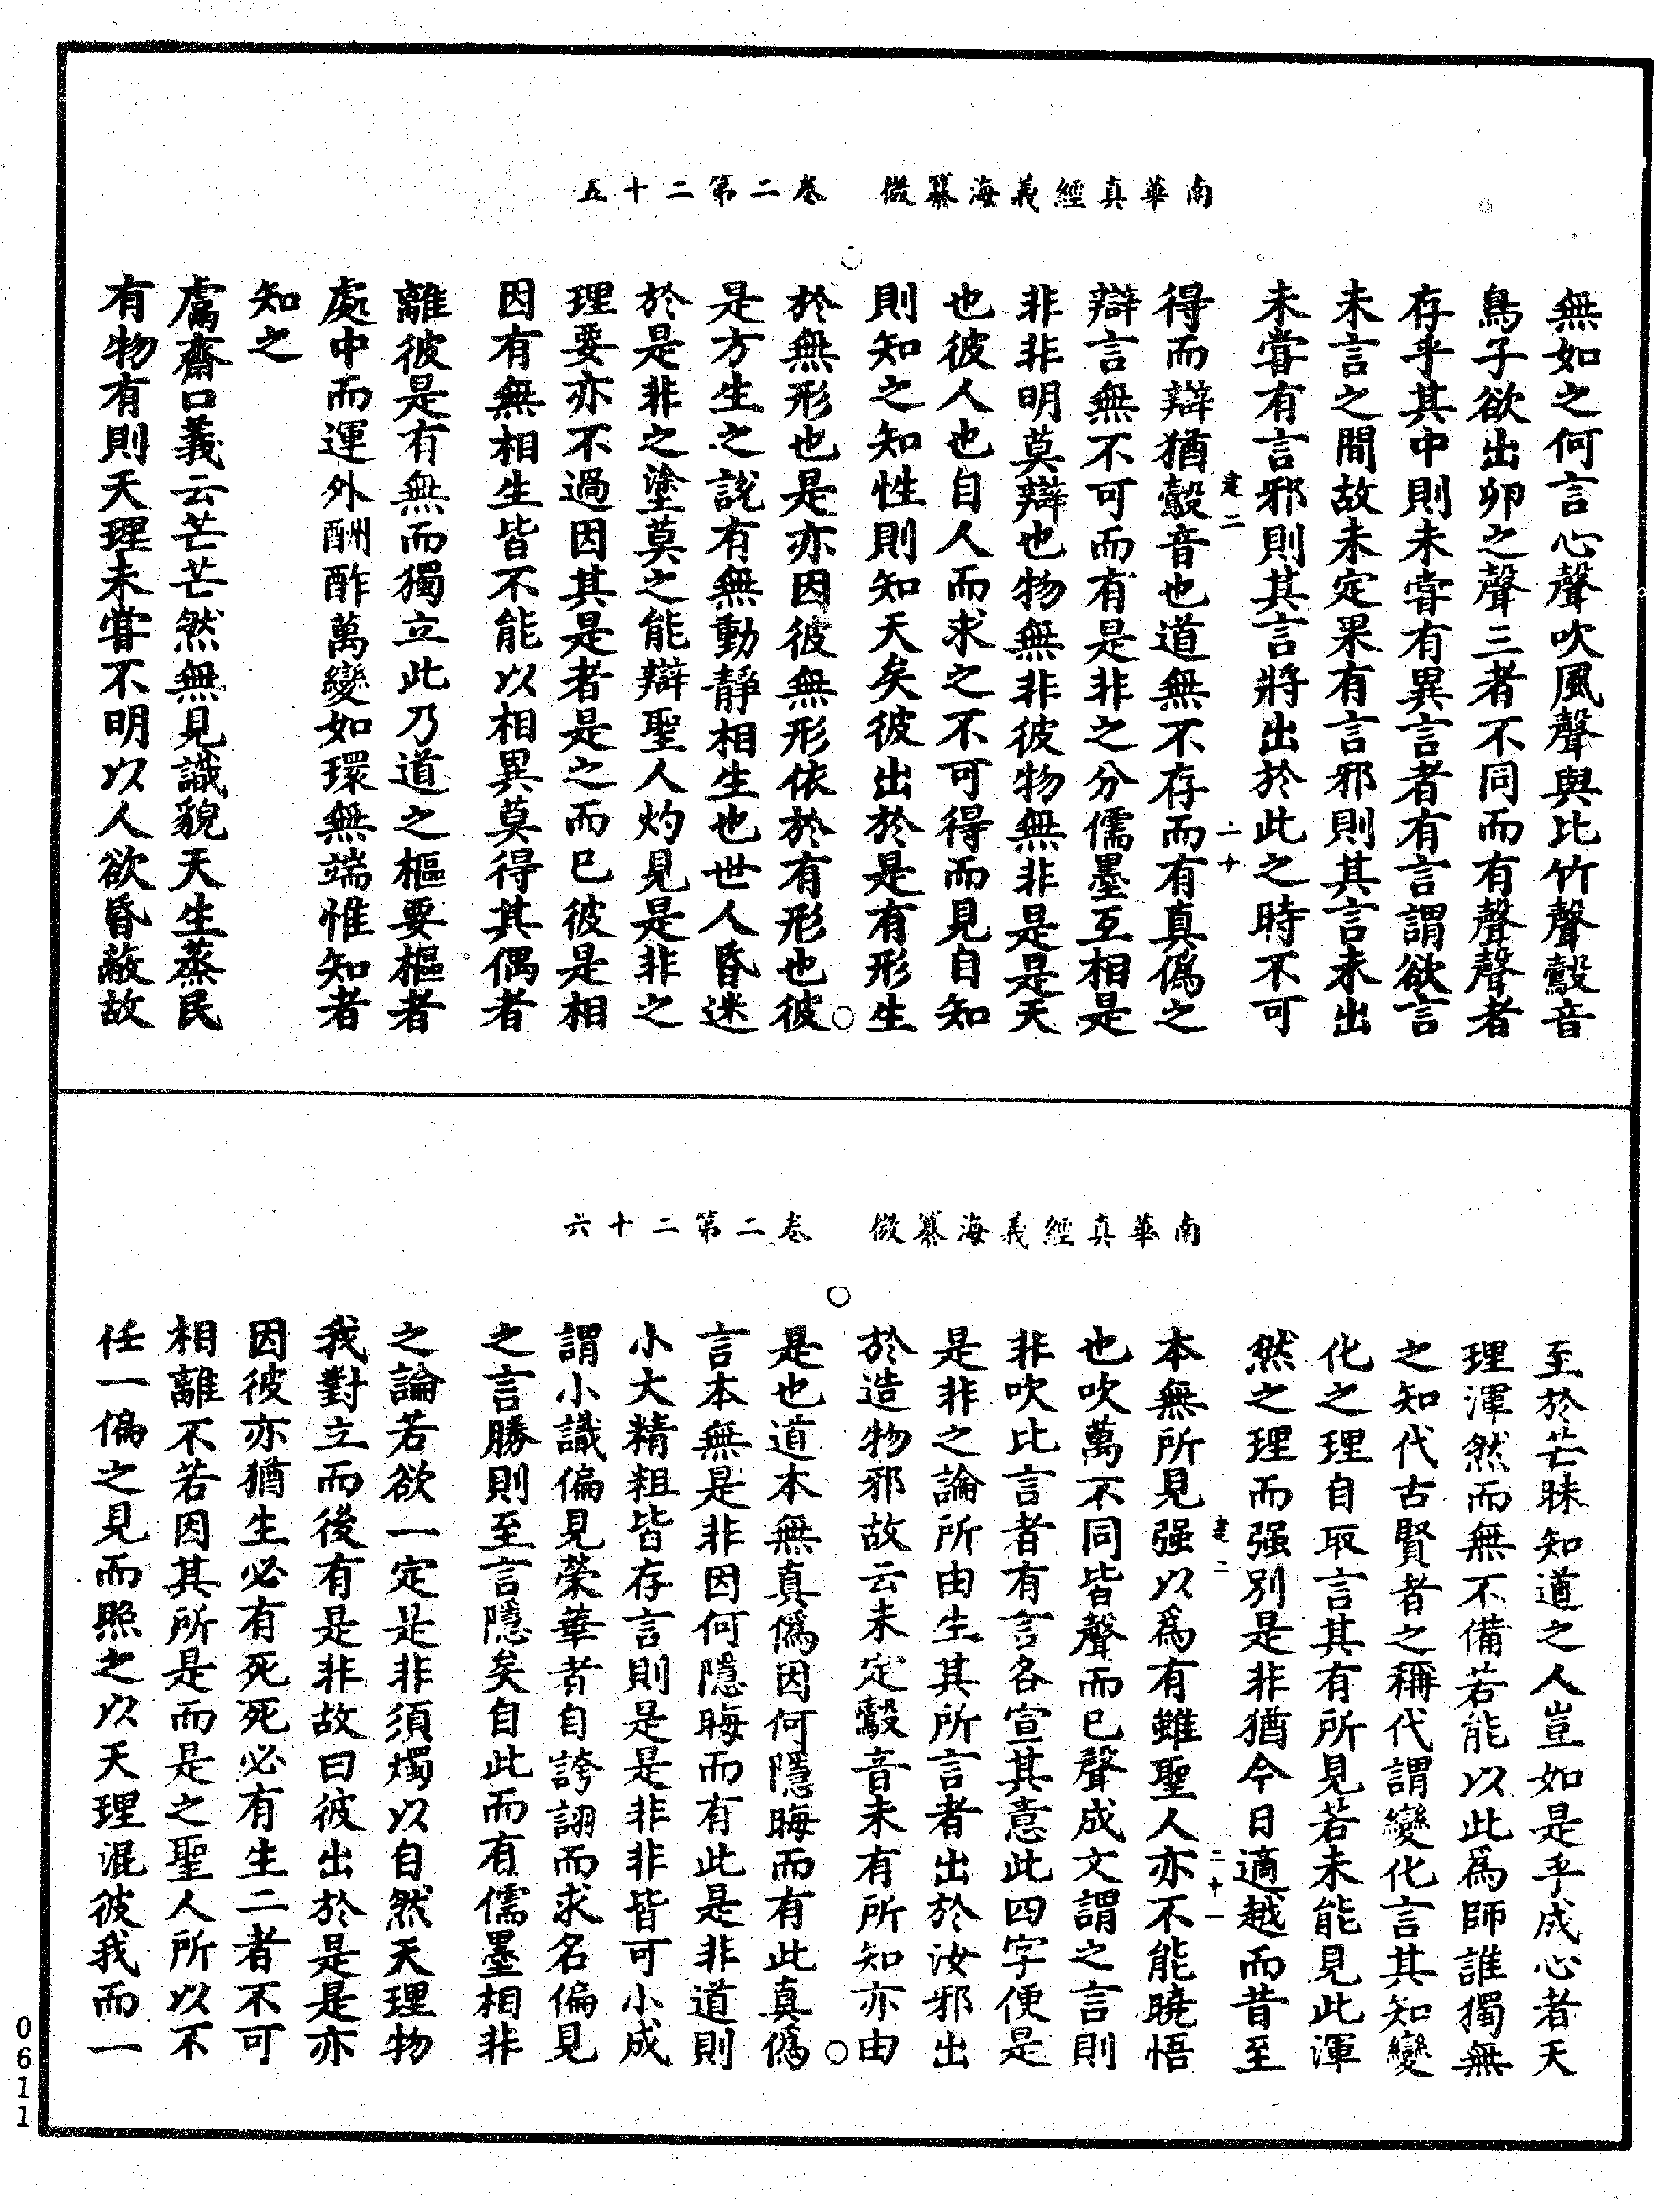 南華真經義海纂微　卷二第二十五
無如之何言心聲吹風聲與比竹聲鷇音
鳥子欲出卵之聲三者不同而有聲聲者
存乎其中則未嘗有異言者有言謂欲言
未言之間故未定果有言邪則其言未出
未嘗有言邪則其言將出於此之時不可
建二　二十
得而辯猶鷇音也道無不存而有真偽之
辯言無不可而有是非之分儒墨互相是
非非明莫辯也物無非彼物無非是是天
也彼人也自人而求之不可得而見自知
則知之知性則知天矣彼出於是有形生
於無形也是亦因彼無形依於有形也彼
是方生之說有無動靜相生也世人昏迷
於是非之塗莫之能辯聖人灼見是非之
理要亦不過因其是者是之而已彼是相
因有無相生皆不能以相異莫得其偶者
離彼是有無而獨立此乃道之樞要樞者
處中而運外酬酢萬變如環無端惟知者
知之
鬳齋口義云芒芒然無見識貌天生蒸民
有物有則天理未嘗不明以人欲昏蔽故
南華真經義海纂微　卷二第二十六
至於芒昧知道之人豈如是乎成心者天
理渾然而無不備若能以此為師誰獨無
之知代古賢者之稱代謂變化言其知變
化之理自取言其有所見若未能見此渾
然之理而强別是非猶今日適越而昔至
建二　二十一
本無所見强以爲有雖聖人亦不能曉悟
也吹萬不同皆聲而已聲成文謂之言則
非吹比言者有言各宣其意此四字便是
是非之論所由生其所言者出於汝邪出
於造物邪故云未定鷇音未有所知亦由
是也道本無真僞因何隱晦而有此真僞
言本無是非因何隱晦而有此是非道則
小大精粗皆存言則是是非非皆可小成
謂小識偏見榮華者自誇詡而求名偏見
之言勝則至言隱矣自此而有儒墨相非
之論若欲一定是非須燭以自然天理物
我對立而後有是非故曰彼出於是是亦
因彼亦猶生必有死死必有生二者不可
相離不若因其所是而是之聖人所以不
任一偏之見而照之以天理混彼我而一
0611